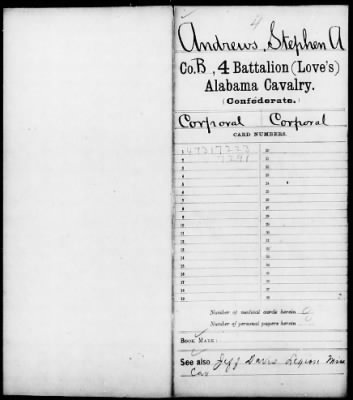 4
Andrews, Stephen A
Co. B, 4 Battalion (Love's)
Alabama Cavalry.
(Confederate.)
Corporal Corporal
CARD NUMBERS.
1 47317223 20
2 7291 21
3 22
4 23
5 24
6 25
7 26
8 27
9 28
10 29
11 30
12 31
13 32
14 33
15 34
16 35
17 36
18 37
19 38
Number of medical cards herein 0
Number of personal papers herein 0
BOOK MARK:
See also Jeff Davis Legion Miss
Cav